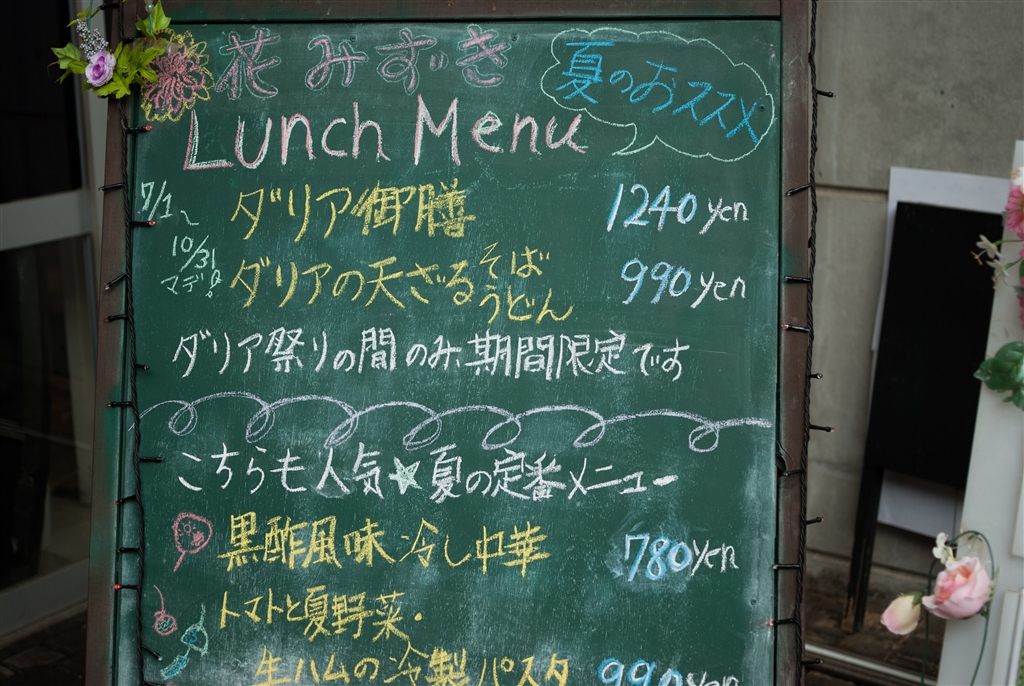 花みずき
夏のおススメ
Lunch Menu
7/1~
10/31
マデ!
ダリア御膳 1240 yen
ダリアの天ざる そば うどん 990 yen
ダリア祭りの間のみ期間限定です
こちらも人気★夏の定番メニュー
黒酢風味 冷し中華 780 yen
トマトと夏野菜・
生ハムの冷製パスタ 990 yen